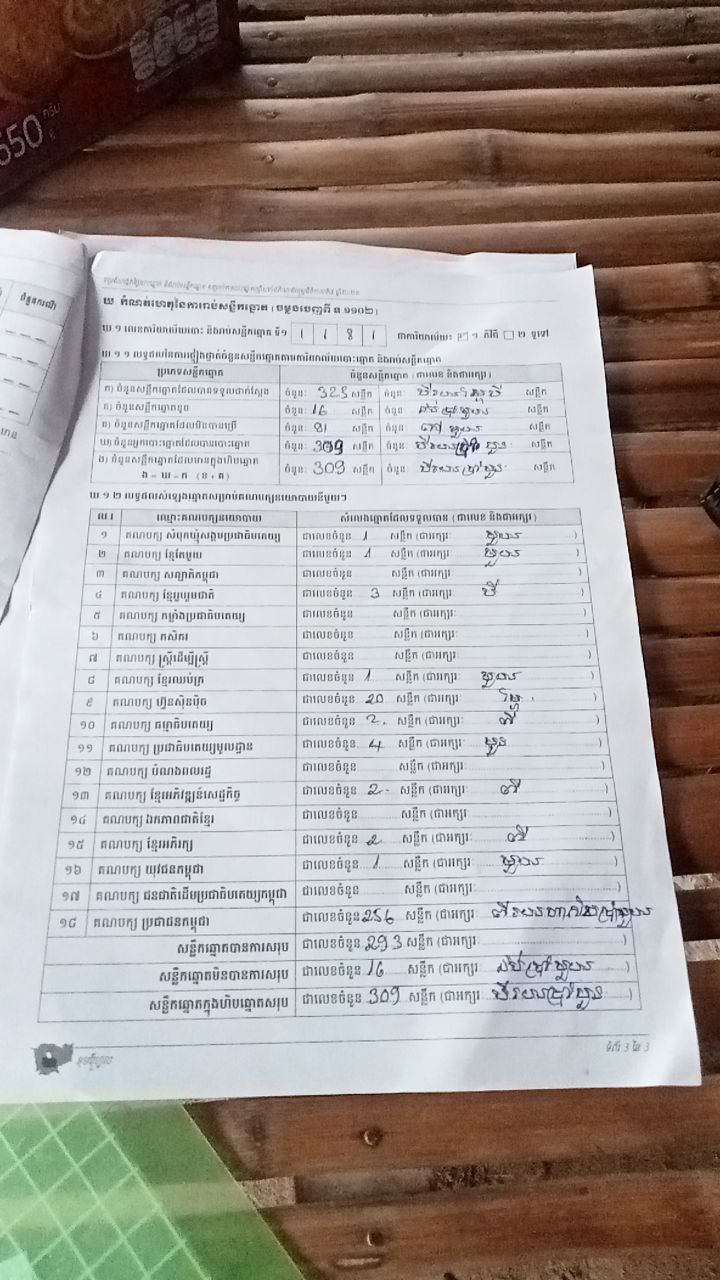 650 ក្រម
g
ចំនួនករណី
ឃ កំណត់ហេតុនៃការរាប់សន្លឹកឆ្នោត (ចម្លងចេញពី ឆ.១១០២)
ឃ.១ លេខការិយាល័យបោះ និងរាប់សន្លឹកឆ្នោត ទី១ 1 1 8 1 ជាការិយាល័យ: ១. ភីវីពី ២. ទូទៅ
ឃ.១.១ លទ្ធផលនៃការផ្ទៀងផ្ទាត់ចំនួនសន្លឹកឆ្នោតតាមការិយាល័យបោះឆ្នោត និងរាប់សន្លឹកឆ្នោត
ប្រភេទសន្លឹកឆ្នោត ចំនួនសន្លឹកឆ្នោត (ជាលេខ និងជាអក្សរ)
ក) ចំនួនសន្លឹកឆ្នោតដែលបានទទួលជាក់ស្តែង ចំនួន: សន្លឹក ចំនួន: សន្លឹក
ខ) ចំនួនសន្លឹកឆ្នោតខូច ចំនួន: 16 សន្លឹក ចំនួន: សន្លឹក
គ) ចំនួនសន្លឹកឆ្នោតដែលមិនបានប្រើ ចំនួន: សន្លឹក ចំនួន: សន្លឹក
ឃ) ចំនួនអ្នកបោះឆ្នោតដែលបានបោះឆ្នោត ចំនួន: 309 សន្លឹក ចំនួន: សន្លឹក
ង) ចំនួនសន្លឹកឆ្នោតដែលមានក្នុងហិបឆ្នោត ចំនួន: 309 សន្លឹក ចំនួន: សន្លឹក
ឃ.១.២ លទ្ធផលសំឡេងឆ្នោតសម្រាប់គណបក្សនយោបាយនីមួយៗ
ល.រ ឈ្មោះគណបក្សនយោបាយ សំលេងឆ្នោតដែលទទួលបាន (ជាលេខ និងជាអក្សរ)
១ គណបក្ស សំបុកឃ្មុំសង្គមប្រជាធិបតេយ្យ ជាលេខចំនួន 1 សន្លឹក (ជាអក្សរ: មួយ )
២ គណបក្ស ខ្មែរតែមួយ ជាលេខចំនួន 1 សន្លឹក (ជាអក្សរ: មួយ )
៣ គណបក្ស សញ្ជាតិកម្ពុជា ជាលេខចំនួន សន្លឹក (ជាអក្សរ: )
៤ គណបក្ស ខ្មែររួបរួមជាតិ ជាលេខចំនួន 3 សន្លឹក (ជាអក្សរ: បី )
៥ គណបក្ស កម្លាំងប្រជាធិបតេយ្យ ជាលេខចំនួន សន្លឹក (ជាអក្សរ: )
៦ គណបក្ស កសិករ ជាលេខចំនួន សន្លឹក (ជាអក្សរ: )
៧ គណបក្ស ស្ត្រីដើម្បីស្ត្រី ជាលេខចំនួន សន្លឹក (ជាអក្សរ: )
៨ គណបក្ស ខ្មែរឈប់ក្រ ជាលេខចំនួន 1 សន្លឹក (ជាអក្សរ: មួយ )
៩ គណបក្ស ហ៊្វុនស៊ិនប៉ិច ជាលេខចំនួន 20 សន្លឹក (ជាអក្សរ: ម្ភៃ )
១០ គណបក្ស ធម្មាធិបតេយ្យ ជាលេខចំនួន 2 សន្លឹក (ជាអក្សរ: ពីរ )
១១ គណបក្ស ប្រជាធិបតេយ្យមូលដ្ឋាន ជាលេខចំនួន 4 សន្លឹក (ជាអក្សរ: បួន )
១២ គណបក្ស បំណងពលរដ្ឋ ជាលេខចំនួន សន្លឹក (ជាអក្សរ: )
១៣ គណបក្ស ខ្មែរអភិវឌ្ឍន៍សេដ្ឋកិច្ច ជាលេខចំនួន 2 សន្លឹក (ជាអក្សរ: ពីរ )
១៤ គណបក្ស ឯកភាពជាតិខ្មែរ ជាលេខចំនួន សន្លឹក (ជាអក្សរ: )
១៥ គណបក្ស ខ្មែរអភិរក្ស ជាលេខចំនួន 2 សន្លឹក (ជាអក្សរ: ពីរ )
១៦ គណបក្ស យុវជនកម្ពុជា ជាលេខចំនួន 1 សន្លឹក (ជាអក្សរ: មួយ )
១៧ គណបក្ស ជនជាតិដើមប្រជាធិបតេយ្យកម្ពុជា ជាលេខចំនួន សន្លឹក (ជាអក្សរ: )
១៨ គណបក្ស ប្រជាជនកម្ពុជា ជាលេខចំនួន 256 សន្លឹក (ជាអក្សរ:
សន្លឹកឆ្នោតបានការសរុប ជាលេខចំនួន 293 សន្លឹក (ជាអក្សរ: )
សន្លឹកឆ្នោតមិនបានការសរុប ជាលេខចំនួន 16 សន្លឹក (ជាអក្សរ: )
សន្លឹកឆ្នោតក្នុងហិបឆ្នោតសរុប ជាលេខចំនួន 309 សន្លឹក (ជាអក្សរ: )
ទំព័រ 3 នៃ 3